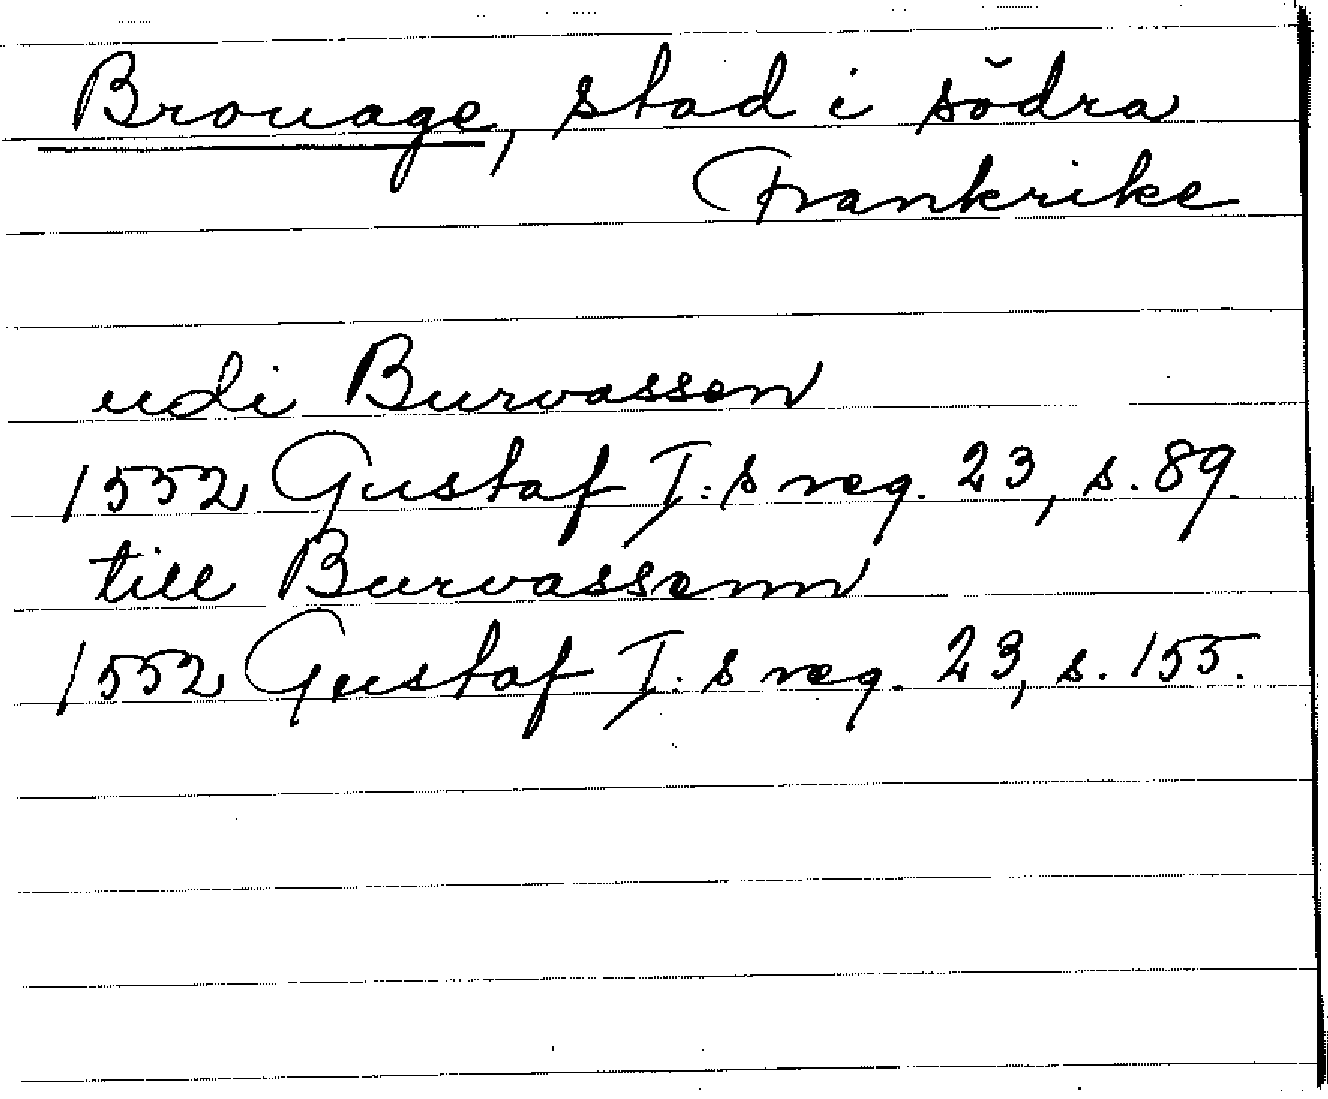 Brouage, stad i södra
Frankrike
udi Burvassen
1552 Gustaf I:s reg. 23, s. 89.
till Burvassenn
1552 Gustaf I:s reg. 23, s. 155.